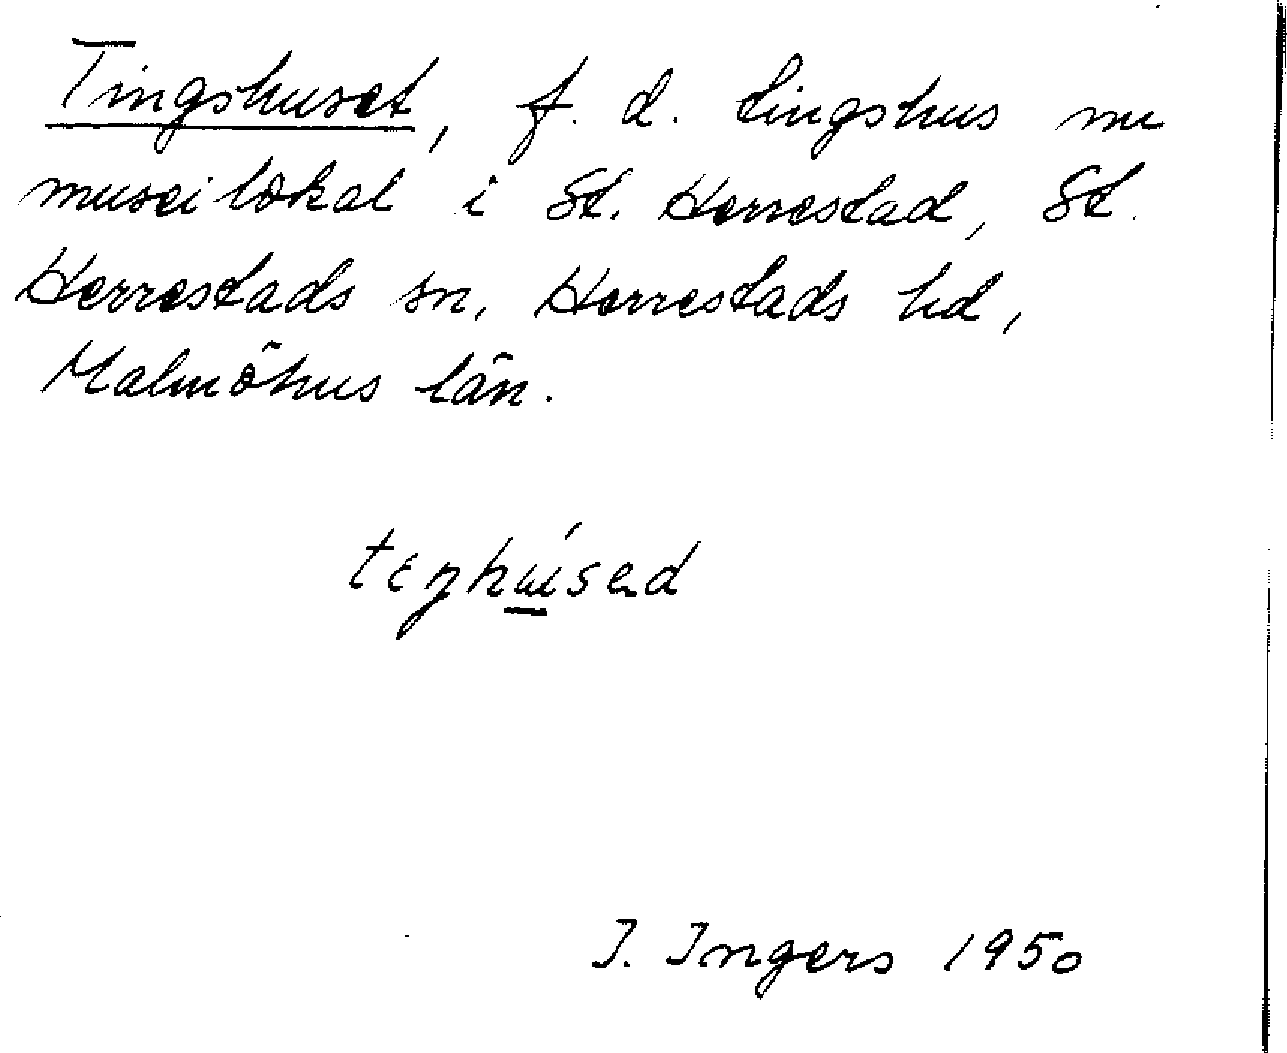 Tingshuset, f. d. tingshus nu
museilokal i St. Herrestad, St.
Herrestads sn, Herrestads hd,
Malmöhus län.
I. Ingers 1950